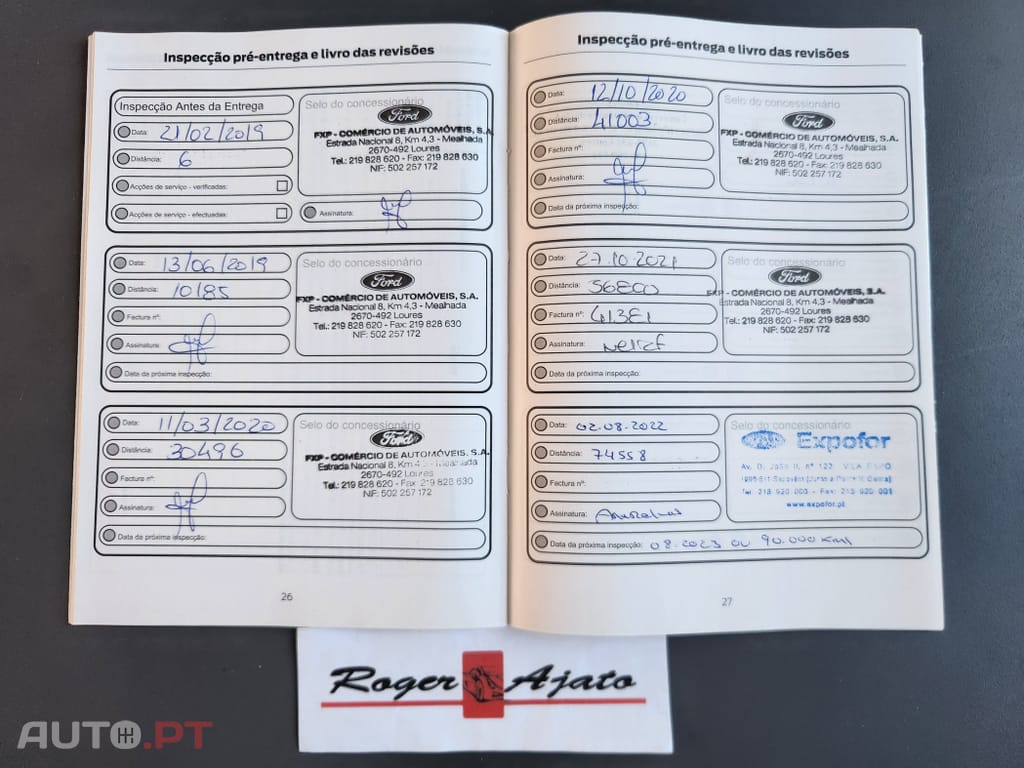 Inspecção pré-entrega e livro das revisões
Inspecção Antes da Entrega
Data: 21/02/2019
Distância: 6
Acções de serviço - verificadas:
Acções de serviço - efectuadas:
Selo do concessionário
Ford
FXP - COMÉRCIO DE AUTOMÓVEIS, S.A.
Estrada Nacional 8, Km 4,3 - Mealhada
2670-492 Loures
Tel.: 219 828 620 - Fax: 219 828 630
NIF: 502 257 172
Assinatura:
Data: 13/06/2019
Distância: 10185
Factura nº:
Assinatura:
Data da próxima inspecção:
Selo do concessionário
Ford
FXP - COMÉRCIO DE AUTOMÓVEIS, S.A.
Estrada Nacional 8, Km 4,3 - Mealhada
2670-492 Loures
Tel.: 219 828 620 - Fax: 219 828 630
NIF: 502 257 172
Data: 11/03/2020
Distância: 30496
Factura nº:
Assinatura:
Data da próxima inspecção:
Selo do concessionário
Ford
FXP - COMÉRCIO DE AUTOMÓVEIS, S.A.
Estrada Nacional 8, Km 4,3 - Mealhada
2670-492 Loures
Tel.: 219 828 620 - Fax: 219 828 630
NIF: 502 257 172
26
Inspecção pré-entrega e livro das revisões
Data: 12/10/2020
Distância: 41003
Factura nº:
Assinatura:
Data da próxima inspecção:
Selo do concessionário
Ford
FXP - COMÉRCIO DE AUTOMÓVEIS, S.A.
Estrada Nacional 8, Km 4,3 - Mealhada
2670-492 Loures
Tel.: 219 828 620 - Fax: 219 828 630
NIF: 502 257 172
Data: 27.10.2021
Distância:
Factura nº:
Assinatura:
Data da próxima inspecção:
Selo do concessionário
Ford
FXP - COMÉRCIO DE AUTOMÓVEIS, S.A.
Estrada Nacional 8, Km 4,3 - Mealhada
2670-492 Loures
Tel.: 219 828 620 - Fax: 219 828 630
NIF: 502 257 172
Data: 02.08.2022
Distância: 74558
Factura nº:
Assinatura:
Data da próxima inspecção: 08.2023 ou 90.000 Kms
Selo do concessionário
Ford Expofor
Av. D. João II, nº
Tel: 218 920 003 - Fax: 218 920 001
www.expofor.pt
27
Roger Ajato
AUTO.PT